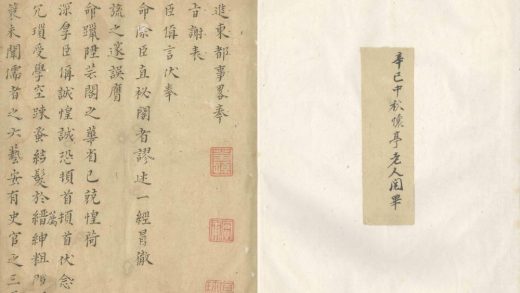 進東都事畧奉
旨謝表
臣偁言伏奉
命除臣直祕閣者謬述一經冒徹
旒之邃誤膺
命躐陞芸閣之華省己兢惶荷
深臣偁誠惶誠恐頓首頓首伏念
冗瑣受學空疎蚤結髮於縉紳粗
裘未闡儒者之六藝安有史官之三
辛巳中秋懷亭老人閱畢